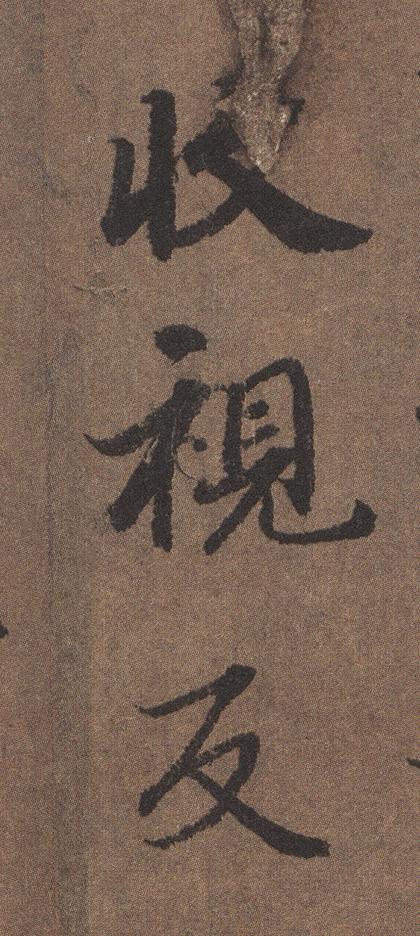 收視反